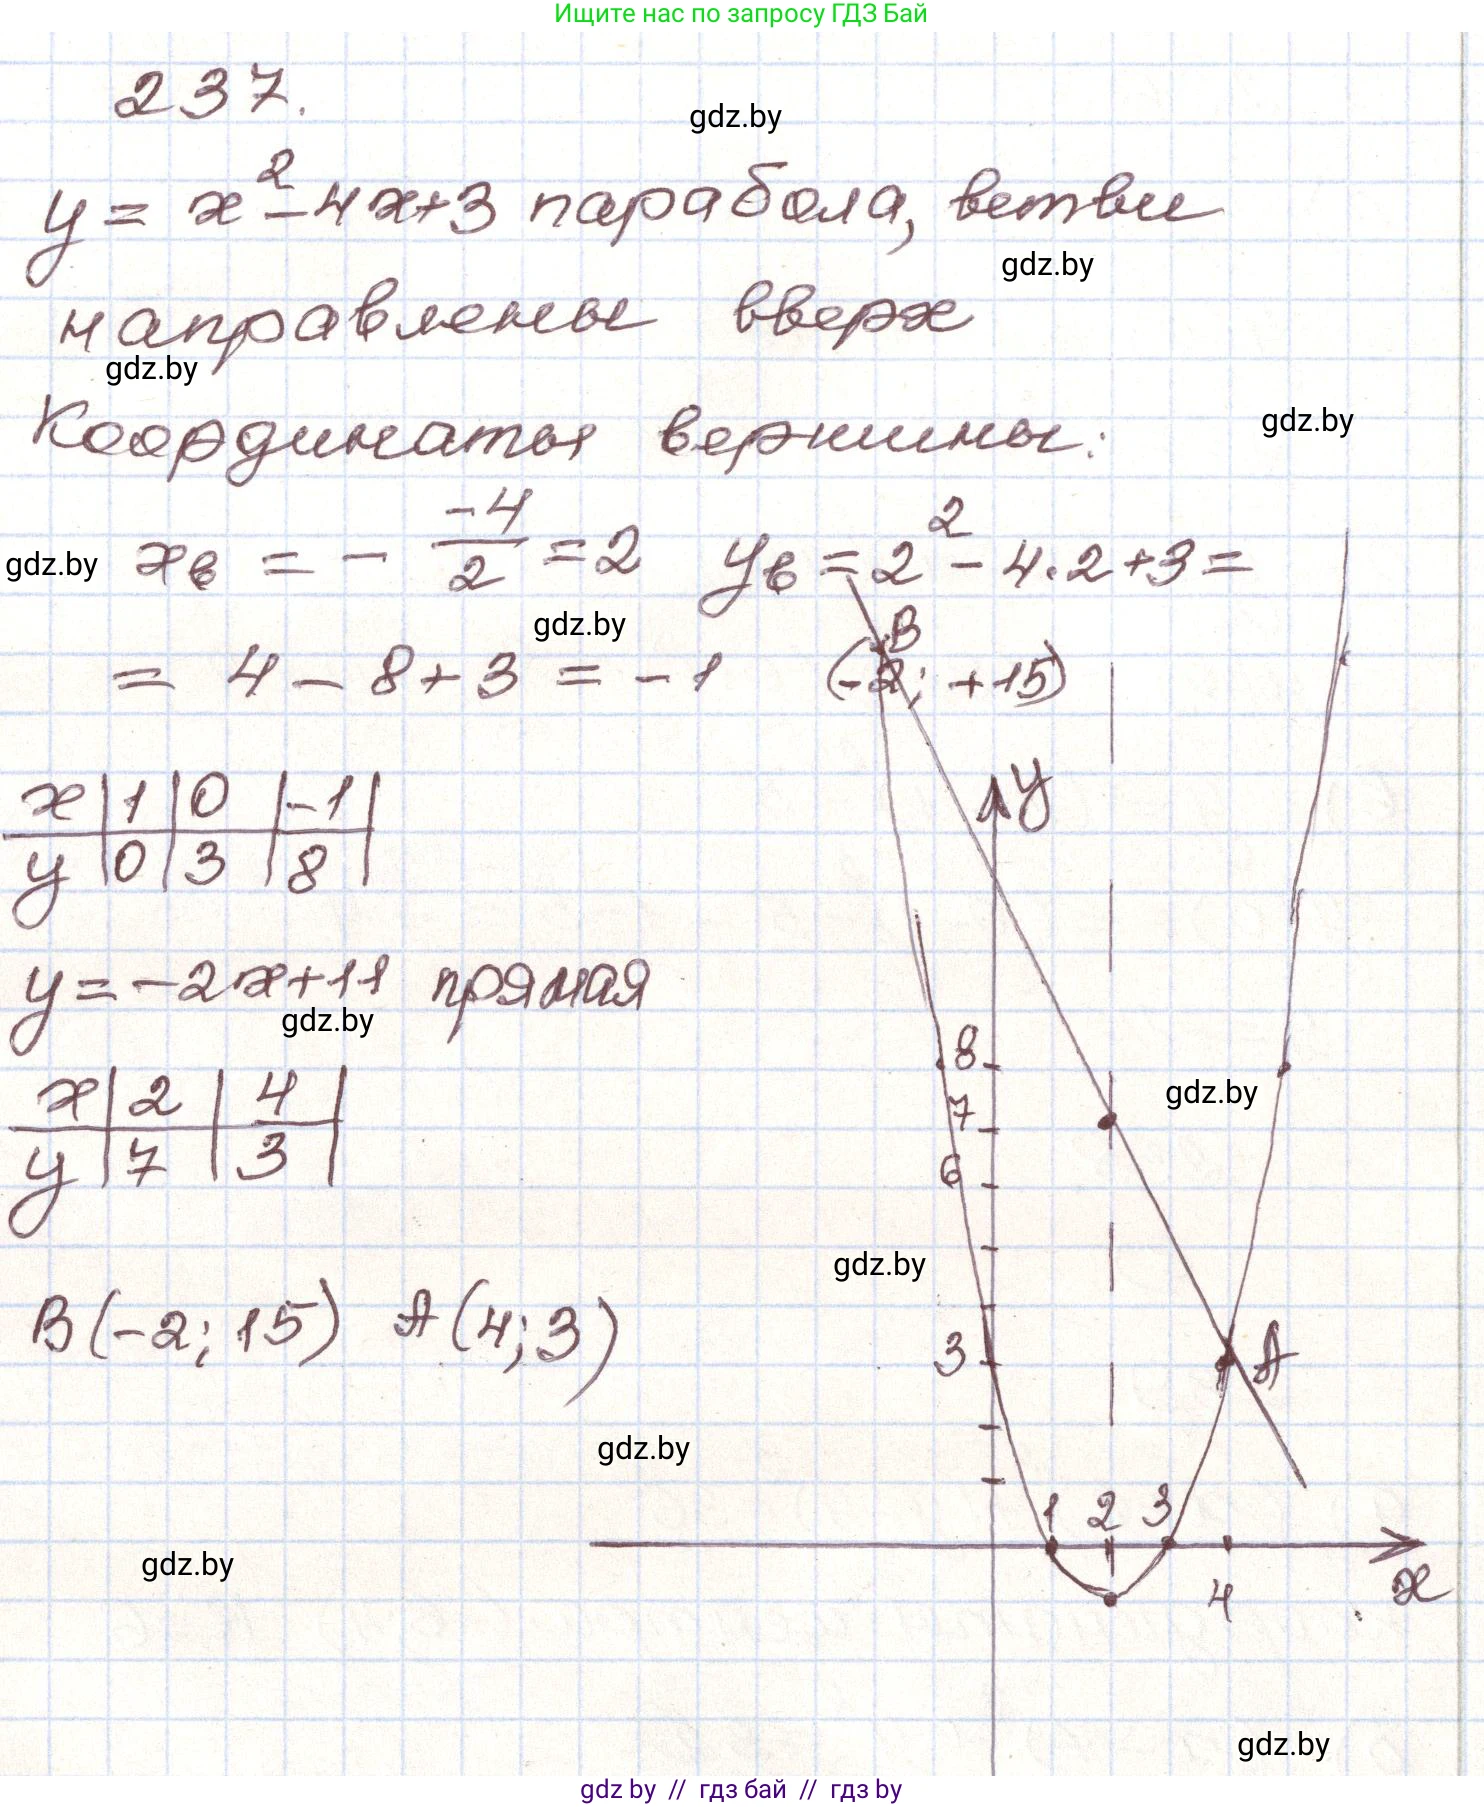 Ищите нас по запросу ГДЗ Бай
237.
gdz.by
y = x² - 4x + 3 парабола, ветви
gdz.by
направлены вверх
gdz.by
Координаты вершины:
gdz.by
xв = - -4/2 = 2 yв = 2² - 4·2 + 3 =
gdz.by
gdz.by
B
= 4 - 8 + 3 = -1 (-2; +15)
x | 1 | 0 | -1 |
y | 0 | 3 | 8 |
y
y = -2x + 11 прямая
gdz.by
8
7
6
3
gdz.by
x | 2 | 4 |
y | 7 | 3 |
gdz.by
B(-2; 15) A(4; 3)
A
gdz.by
1 2 3
4
x
gdz.by
gdz.by
gdz by // гдз бай // гдз by